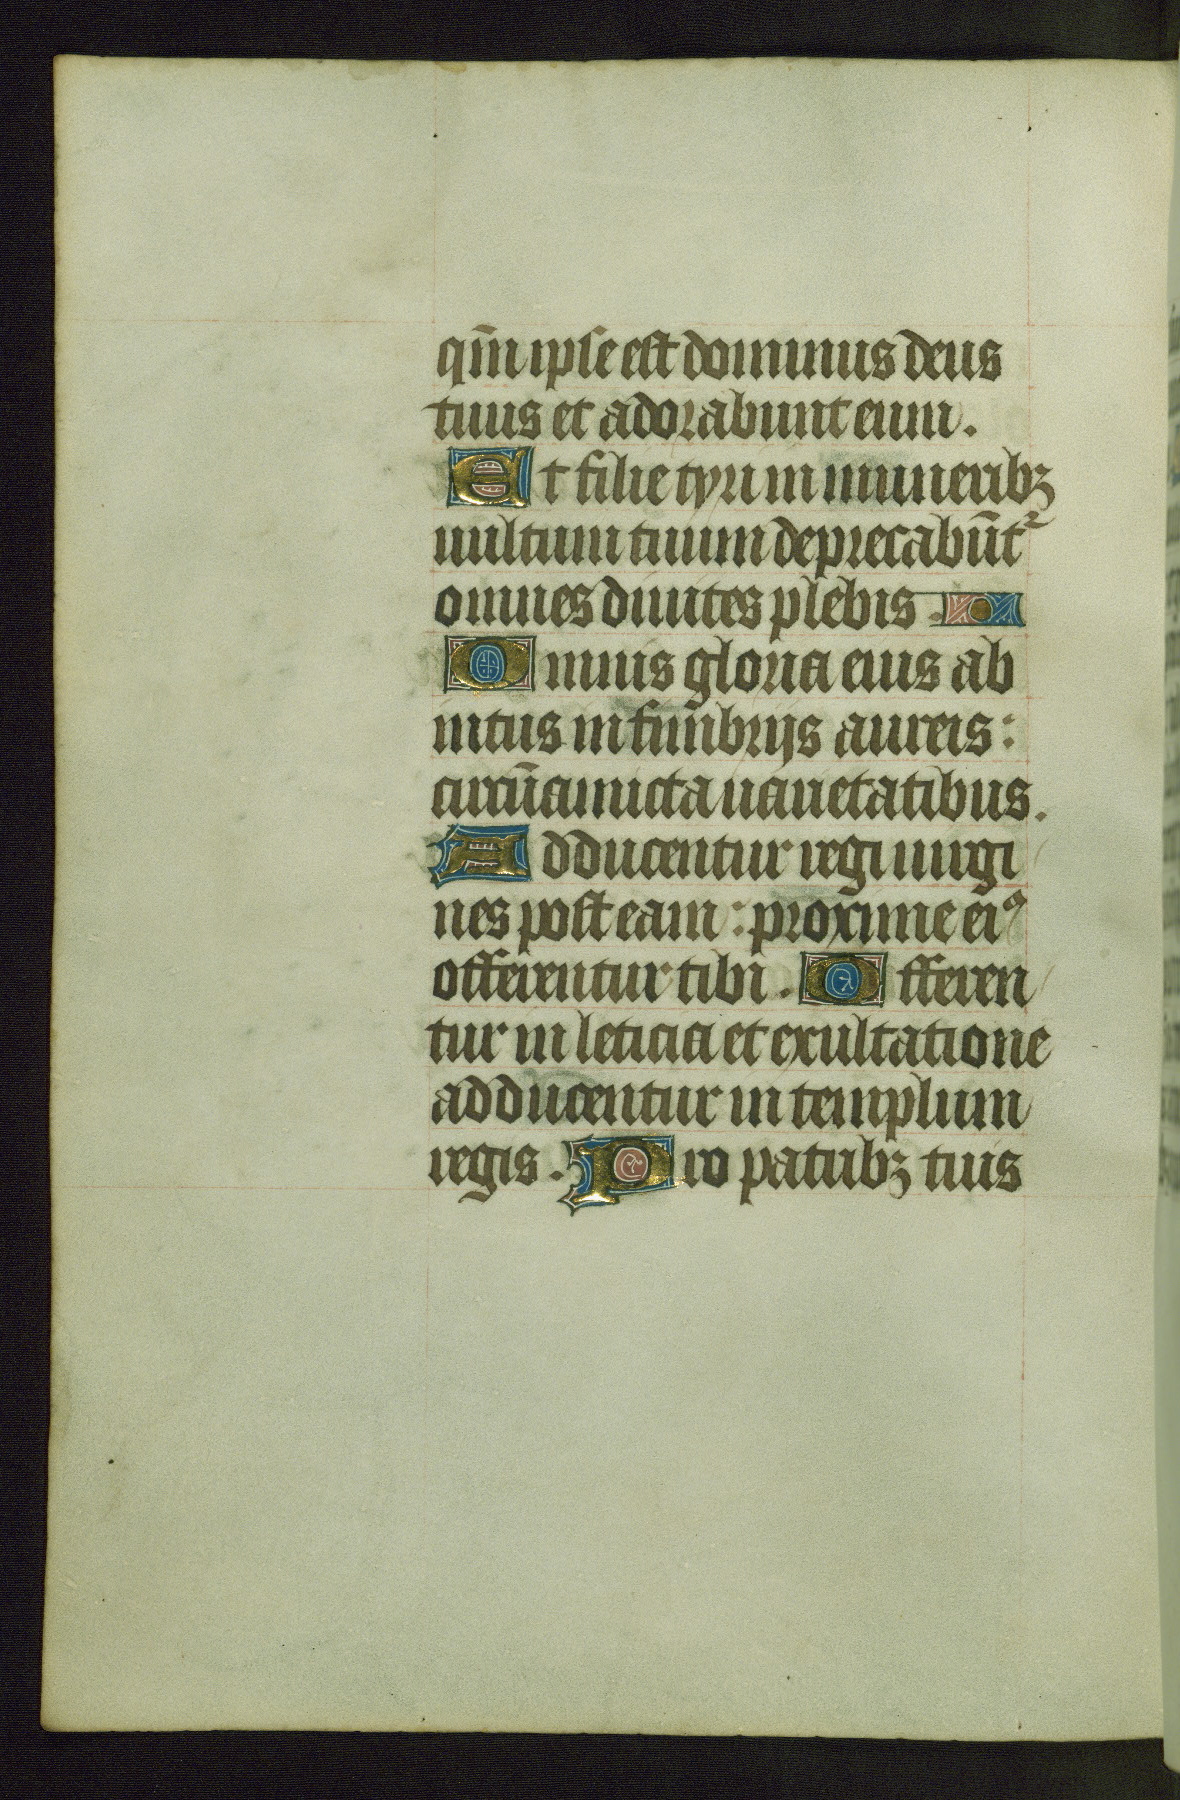 qm̄ ipse est dominus deus
tuus et adorabunt eum.
Et filie tyri in muneribꝫ
uultum tuum deprecabūt᷑
omnes diuites plebis.
Omnis gloria eius ab
intus in fimbrijs aureis:
circūamicta uarietatibus.
Adducentur regi uirgi
nes post eam: proxime eiꝰ
offerentur tibi. Offeren
tur in leticia et exultatione
adducentur in templum
regis. Pro patribꝫ tuis